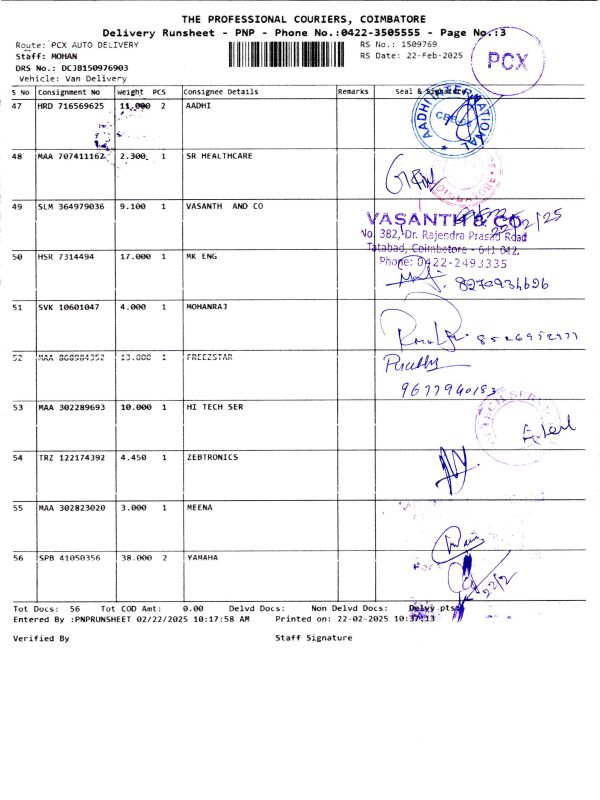 THE PROFESSIONAL COURIERS, COIMBATORE
Delivery Runsheet - PNP - Phone No.:0422-3505555 - Page No.:3
Route: PCX AUTO DELIVERY
RS No.: 1509769
Staff: MOHAN
RS Date: 22-Feb-2025
PCX
DRS No.: DCJB150976903
Vehicle: Van Delivery
S No Consignment No Weight PCS Consignee Details Remarks Seal & Signature
47 HRD 716569625 11.000 2 AADHI
AADHI INTERNATIONAL
CBE
48 MAA 707411162 2.300 1 SR HEALTHCARE
COIMBATORE
49 SLM 364979036 9.100 1 VASANTH AND CO
VASANTH & CO
22/2/25
No. 382, Dr. Rajendra Prasad Road
Tatabad, Coimbatore - 641 012.
Phone: 0422-2493335
50 HSR 7314494 17.000 1 MK ENG
8270934696
51 SVK 10601047 4.000 1 MOHANRAJ
8526952777
52 MAA 868984352 13.000 1 FREEZSTAR
9677940153
53 MAA 302289693 10.000 1 HI TECH SER
54 TRZ 122174392 4.450 1 ZEBTRONICS
55 MAA 302823020 3.000 1 MEENA
56 SPB 41050356 38.000 2 YAMAHA
For
22/2
Tot Docs: 56 Tot COD Amt: 0.00 Delvd Docs: Non Delvd Docs: Delvy pts:
Entered By :PNPRUNSHEET 02/22/2025 10:17:58 AM Printed on: 22-02-2025 10:37:13
Verified By Staff Signature